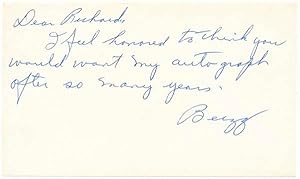 Dear Richard,
I feel honored to think you
would want my autograph
after so many years.